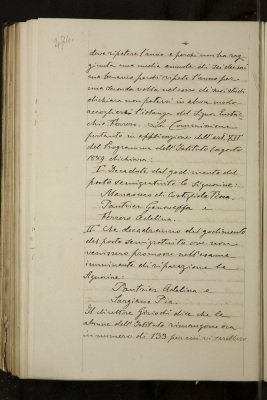 476.
deve ripetere l'anno e perché non ha rag-
giunta una media annuale di sei decimi
ma benanco perché ripete l'anno per
una seconda volta nel corso di suoi studi
dichiara non potersi in alcun modo
accogliere l'istanza del Signor Eusta-
chio Ferrero. La Commissione
pertanto in applicazione dell'art. XII
del Programma dell'Istituto 1 agosto
1879 dichiara:
I° Decadute dal godimento del
posto semigratuito le Signorine:
di Costigliole Rosa
Genoveffa e
Ferrero Adelina.
II° Che decaderanno dal godimento
del posto semigratuito ove non
venissero promosse nell'esame
imminente di riparazione le
Signorine:
Adelina e
Pia
Il direttore dice che le
alunne dell'Istituto rimangono ora
in numero di 133 per cui vi